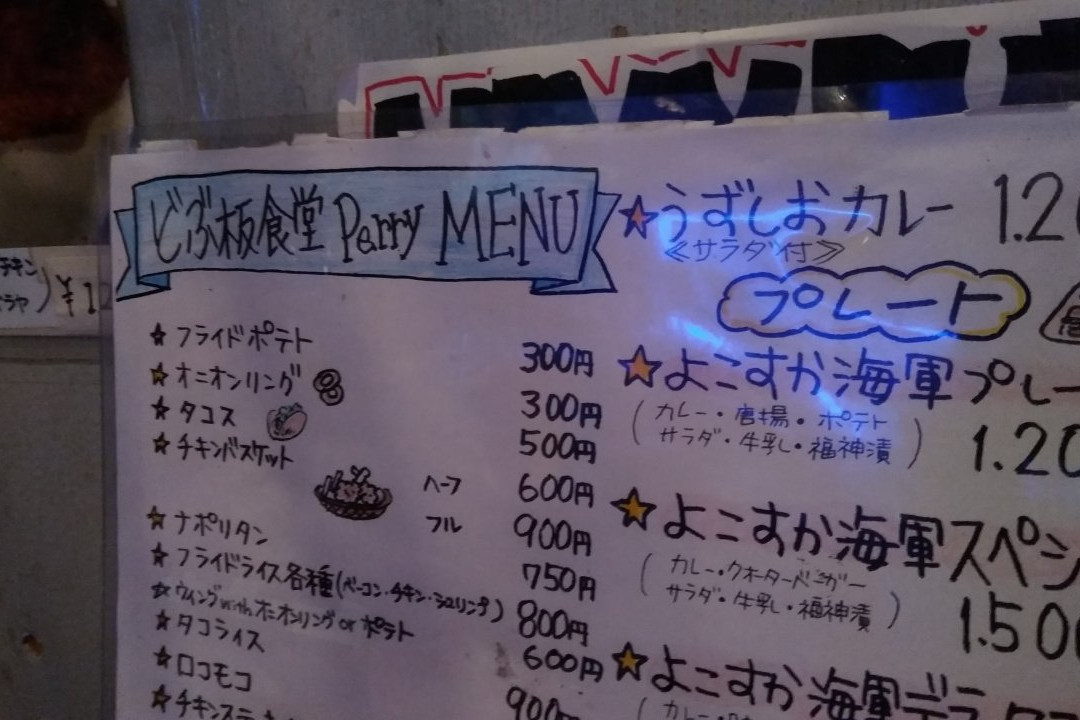 どぶ板食堂 Perry MENU
★フライドポテト 300円
★オニオンリング 300円
★タコス 500円
★チキンバスケット
ハーフ 600円
フル 900円
★ナポリタン 750円
★フライドライス各種(ベーコン・チキン・シュリンプ) 800円
☆ウィングwithオニオンリングorポテト 600円
★タコライス 900
★ロコモコ
★チキンステ
★うずしおカレー 1.20
≪サラダ付≫
プレート
★よこすか海軍プレー
(カレー・唐揚・ポテト
サラダ・牛乳・福神漬) 1.20
★よこすか海軍スペシ
(カレー・クオーターバーガー
サラダ・牛乳・福神漬) 1.50
★よこすか海軍デラ
チキン
) ¥1